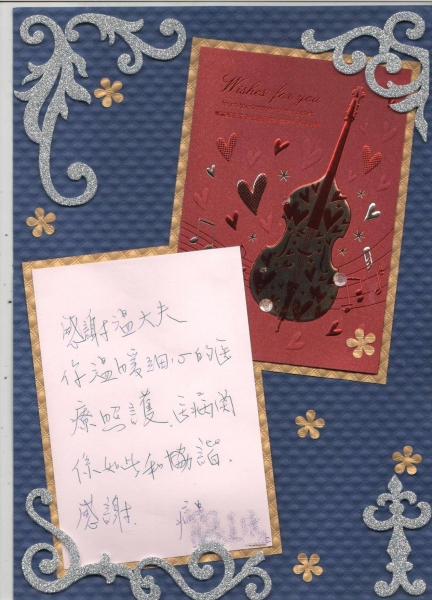 Wishes for you
感謝溫大夫
你溫暖細心的醫
療照護 醫病関
係如此和協諧.
感謝.